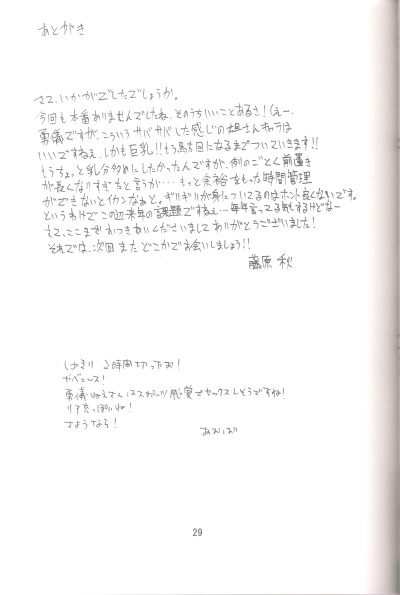 あとがき
さて、いかがでしたでしょうか。
今回も本番ありませんでしたね、そのうちいいことあるさ！(えー、
勇儀ですが、こういうサバサバした感じの姐さんキャラは
いいですねぇ、しかも巨乳!!もう駄目になるまでついていきます!!
もうちょっと乳分多めにしたかったんですが、例のごとく前置き
が長くなりすぎたと言うか…もっと余裕をもった時間管理
ができないとイカンなぁと。ギリギリが身についてるのはホント良くないです。
というわけでこの辺来年の課題ですねぇ…毎年言ってる気もするけどなー
さて、ここまでおつきあいくださいましてありがとうございました！
それでは、次回またどこかでお会いしましょう!!
藤原 秋
しめきり 2時間切ったお！
ヤベェっス！
勇儀ねえさんはスポーツ感覚でセックスしそうですね！
さようなら！
あおば
29